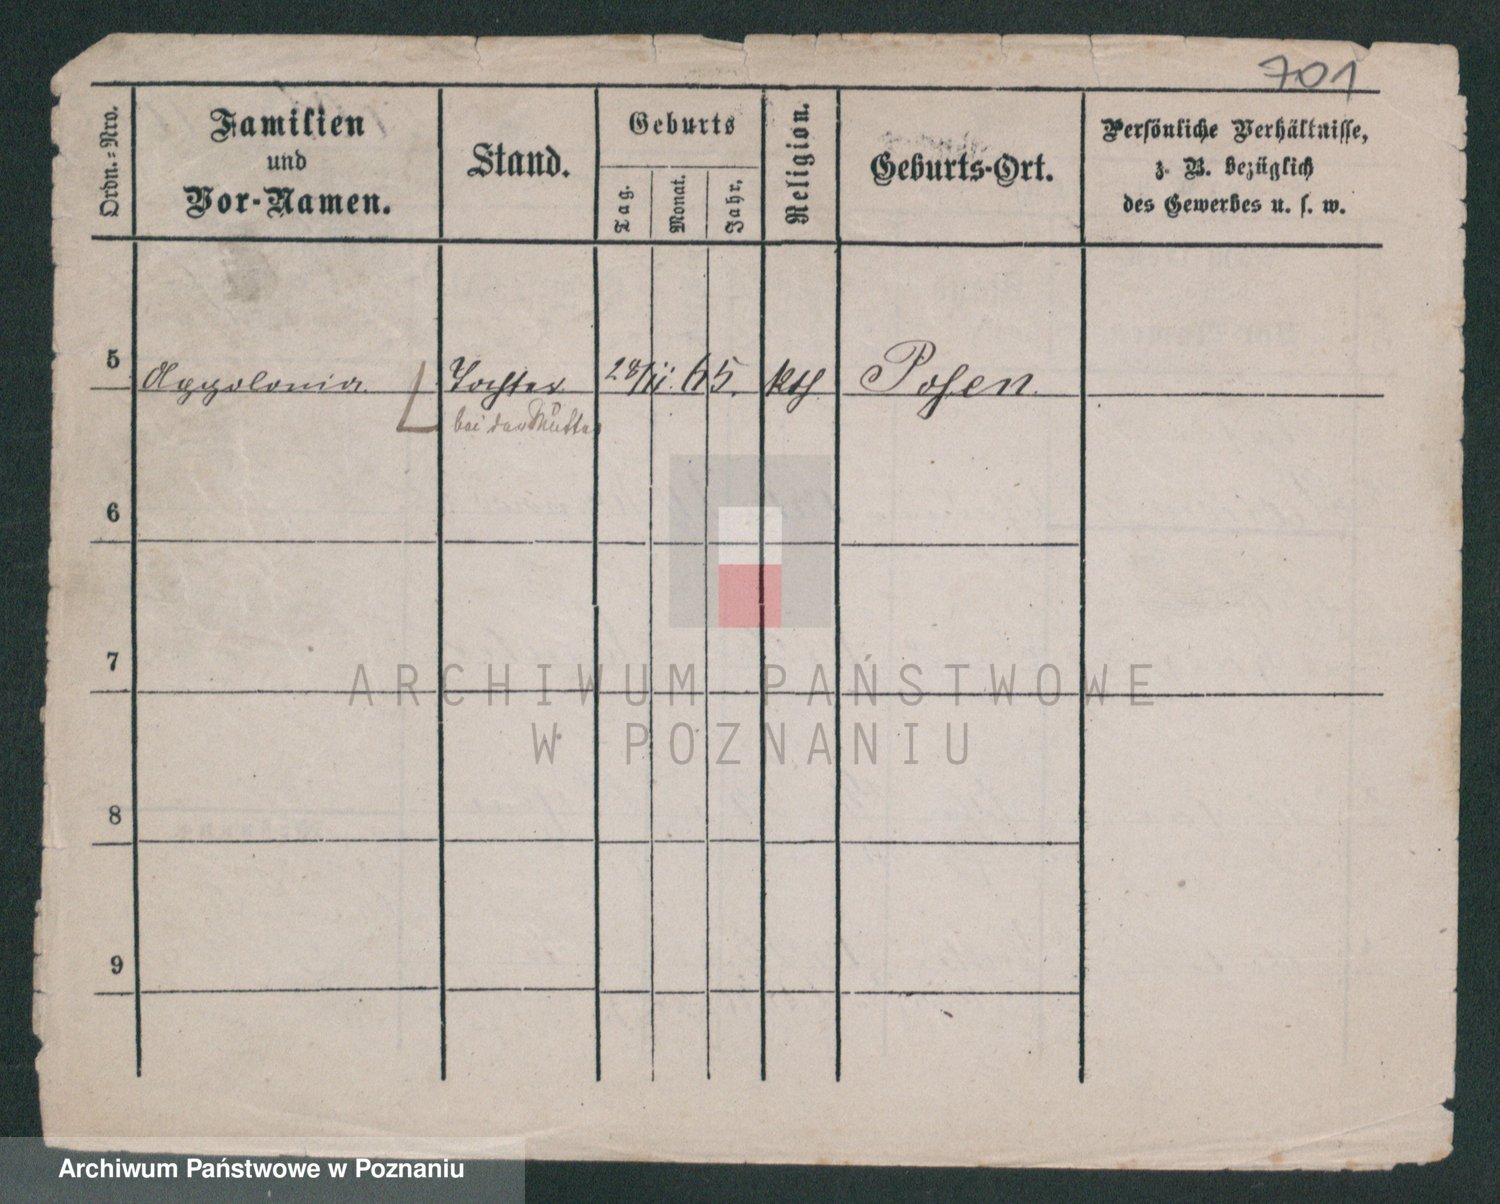 701
Ordn.=Nro.
Familien
und
Vor-Namen.
Stand.
Geburts
Tag.
Monat.
Jahr.
Religion.
Geburts-Ort.
Persönliche Verhältnisse,
z. B. bezüglich
des Gewerbes u. s. w.
5
Appolonia Tochter 28/11. 65. kth Posen
bei der Mutter
6
7
8
9
ARCHIWUM PAŃSTWOWE
W POZNANIU
Archiwum Państwowe w Poznaniu